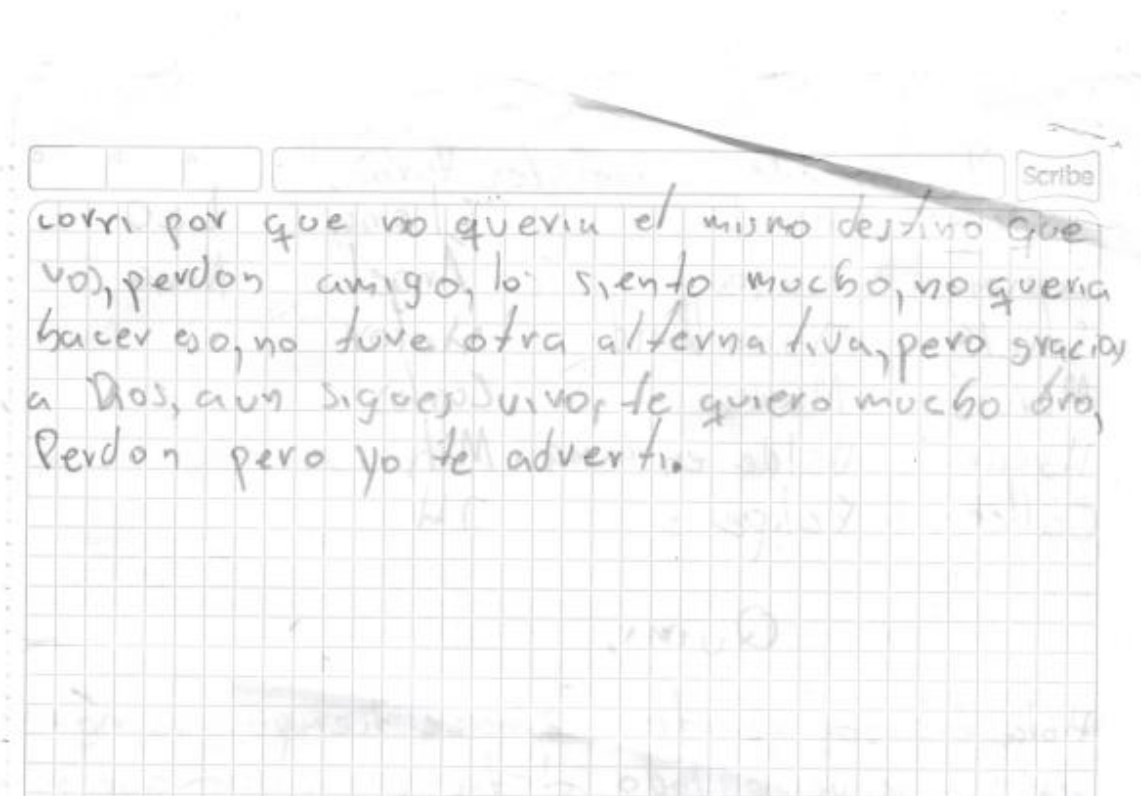 Scribe
corri por que no queria el mismo destino que
vos, perdon amigo, lo siento mucho, no queria
hacer eso, no tuve otra alternativa, pero gracias
a Dios, aun sigues vivo, te quiero mucho bro,
Perdon pero yo te adverti.